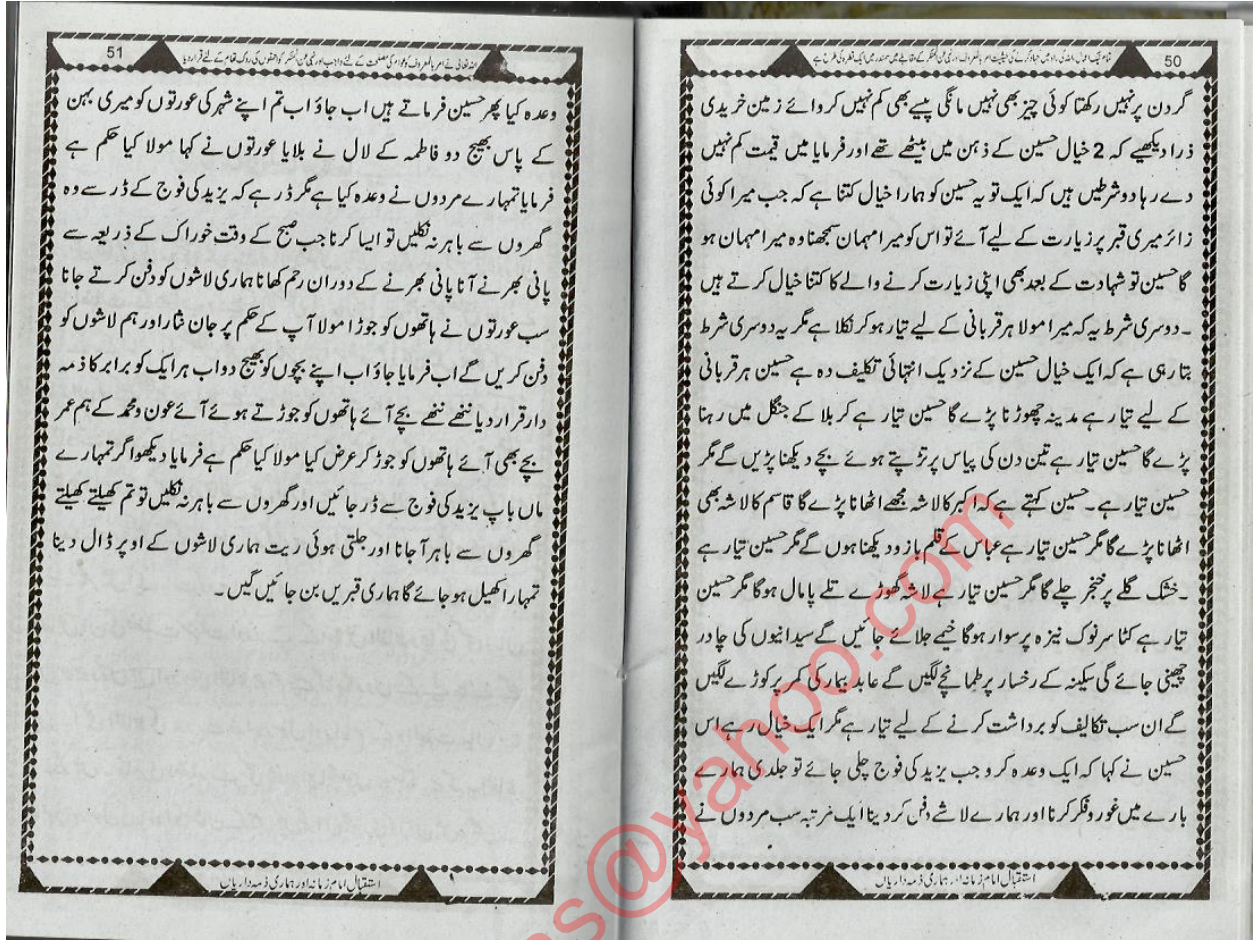 50
تمام نیک اعمال، اللہ کی راہ میں جہاد کرنے کی حیثیت امر بالمعروف اور نہی عن المنکر کے مقابلے میں سمندر میں ایک قطرہ کی طرح ہے
گردن پر نہیں رکھتا کوئی چیز بھی نہیں مانگی پیسے بھی کم نہیں کروائے زمین خریدی
ذرا دیکھیے کہ 2 خیال حسین کے ذہن میں بیٹھے تھے اور فرمایا میں قیمت کم نہیں
دے رہا دو شرطیں ہیں کہ ایک تو یہ حسین کو ہمارا خیال کتنا ہے کہ جب میرا کوئی
زائر میری قبر پر زیارت کے لیے آئے تو اس کو میرا مہمان سمجھنا وہ میرا مہمان ہو
گا حسین تو شہادت کے بعد بھی اپنی زیارت کرنے والے کا کتنا خیال کرتے ہیں
۔ دوسری شرط یہ کہ میرا مولا ہر قربانی کے لیے تیار ہو کر نکلا ہے مگر یہ دوسری شرط
بتا رہی ہے کہ ایک خیال حسین کے نزدیک انتہائی تکلیف دہ ہے حسین ہر قربانی
کے لیے تیار ہے مدینہ چھوڑنا پڑے گا حسین تیار ہے کربلا کے جنگل میں رہنا
پڑے گا حسین تیار ہے تین دن کی پیاس پر تڑپتے ہوئے بچے دیکھنا پڑیں گے مگر
حسین تیار ہے۔ حسین کہتے ہے کہ اکبر کا لاشہ مجھے اٹھانا پڑے گا قاسم کا لاشہ بھی
اٹھانا پڑے گا مگر حسین تیار ہے عباس کے قلم بازو دیکھنا ہوں گے مگر حسین تیار ہے
۔ خشک گلے پر خنجر چلے گا مگر حسین تیار ہے لاشہ گھوڑے تلے پامال ہوگا مگر حسین
تیار ہے کٹا سر نوک نیزہ پر سوار ہوگا خیمے جلائے جائیں گے سیدانیوں کی چادر
چھینی جائے گی سکینہ کے رخسار پر طمانچے لگیں گے عابد بیمار کی کمر پر کوڑے لگیں
گے ان سب تکالیف کو برداشت کرنے کے لیے تیار ہے مگر ایک خیال رہے اس
حسین نے کہا کہ ایک وعدہ کرو جب یزید کی فوج چلی جائے تو جلدی ہمارے
بارے میں غور و فکر کرنا اور ہمارے لاشے دفن کر دینا ایک مرتبہ سب مردوں نے
استقبال امام زمانہ اور ہماری ذمہ داریاں
51
اللہ تعالیٰ نے امر بالمعروف کو عوام کی مصلحت کے لئے واجب اور نہی عن المنکر کو کی روک تھام کے لئے قرار دیا
وعدہ کیا پھر حسین فرماتے ہیں اب جاؤ اب تم اپنے شہر کی عورتوں کو میری بہن
کے پاس بھیج دو فاطمہ کے لال نے بلایا عورتوں نے کہا مولا کیا حکم ہے
فرمایا تمہارے مردوں نے وعدہ کیا ہے مگر ڈر ہے کہ یزید کی فوج کے ڈر سے وہ
گھروں سے باہر نہ نکلیں تو ایسا کرنا جب صبح کے وقت خوراک کے ذریعہ سے
پانی بھرنے آنا پانی بھرنے کے دوران رحم کھانا ہماری لاشوں کو دفن کرتے جانا
سب عورتوں نے ہاتھوں کو جوڑا مولا آپ کے حکم پر جان نثار اور ہم لاشوں کو
دفن کریں گے اب فرمایا جاؤ اب اپنے بچوں کو بھیج دو اب ہر ایک کو برابر کا ذمہ
دار قرار دیا ننھے ننھے بچے آئے ہاتھوں کو جوڑتے ہوئے آئے عون و محمد کے ہم عمر
بچے بھی آئے ہاتھوں کو جوڑ کر عرض کیا مولا کیا حکم ہے فرمایا دیکھو اگر تمہارے
ماں باپ یزید کی فوج سے ڈر جائیں اور گھروں سے باہر نہ نکلیں تو تم کھیلتے کھیلتے
گھروں سے باہر آ جانا اور جلتی ہوئی ریت ہماری لاشوں کے اوپر ڈال دینا
تمہارا کھیل ہو جائے گا ہماری قبریں بن جائیں گیں۔
استقبال امام زمانہ اور ہماری ذمہ داریاں
s@yahoo.com